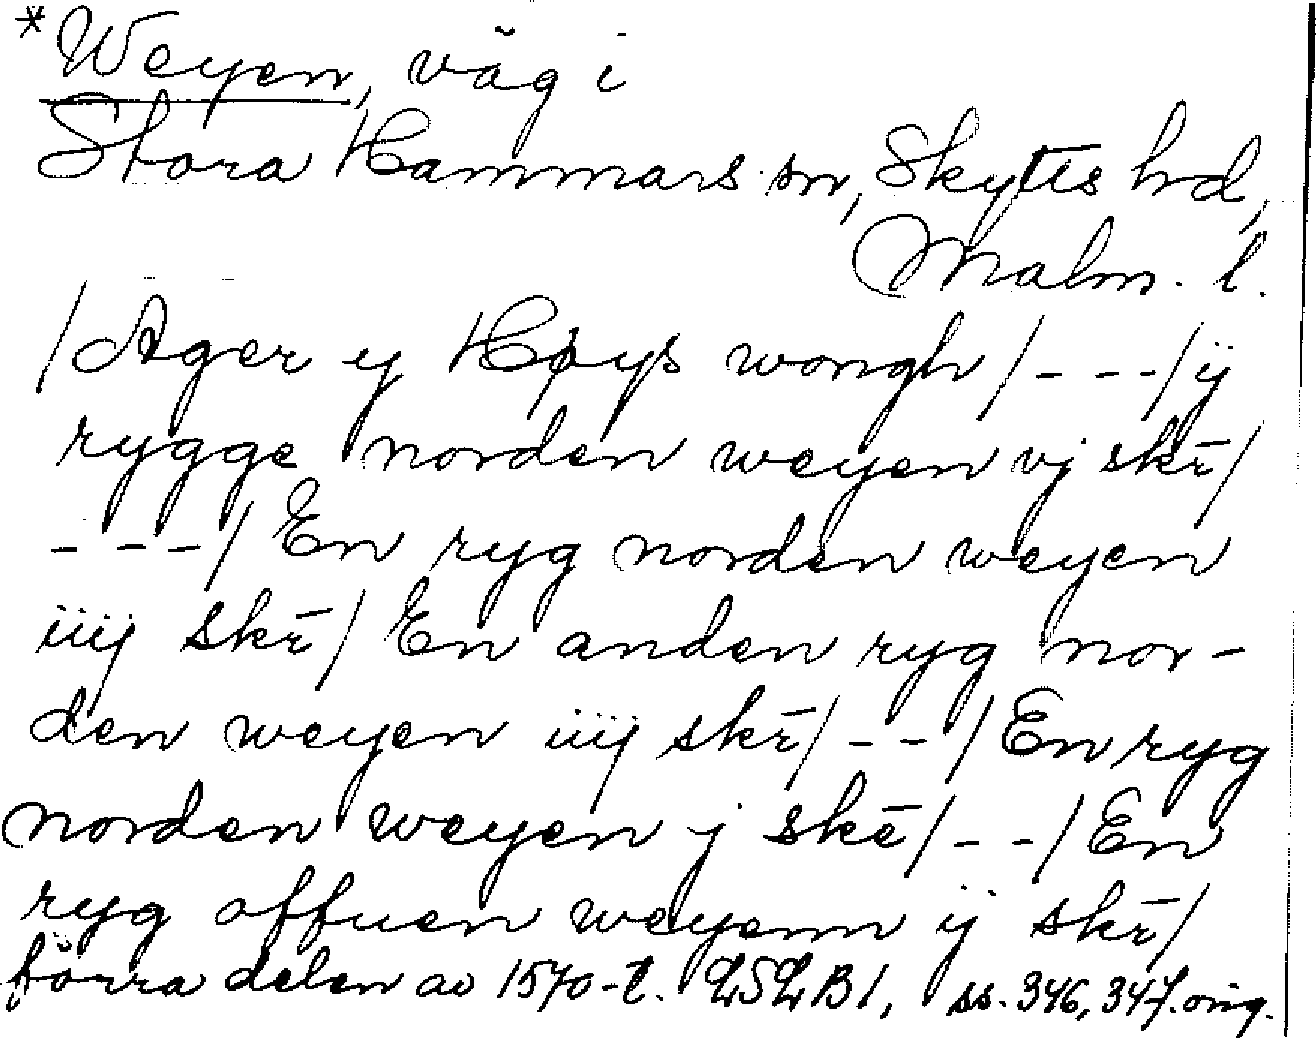 *Weyen, väg i
Stora Hammars sn, Skytts hd,
Malm. l.
/Ager y Høys wongh/---/ij
rygge norden weyen vj skr̄/
---/En ryg norden weyen
iiij skr̄/En anden ryg nor-
den weyen iiij skr̄/--/En ryg
norden weyen j skē/--/En
ryg offuen weyenn ij skr̄/
förra delen av 1570-t. LSLB1, ss. 346, 347. orig.